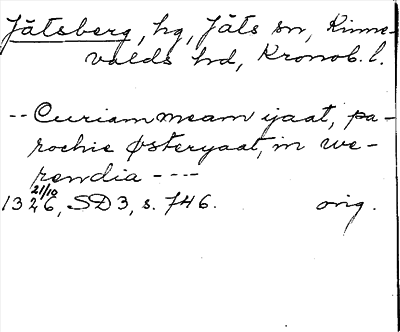 Jätsberg, hg, Jäts sn, Kinne-
valds hd, Kronob. l.
-- Curiam meam ijaat, pa-
rochie Østeryaat, in we-
rendia ----
21/10
1326, SD3, s. 746. orig.